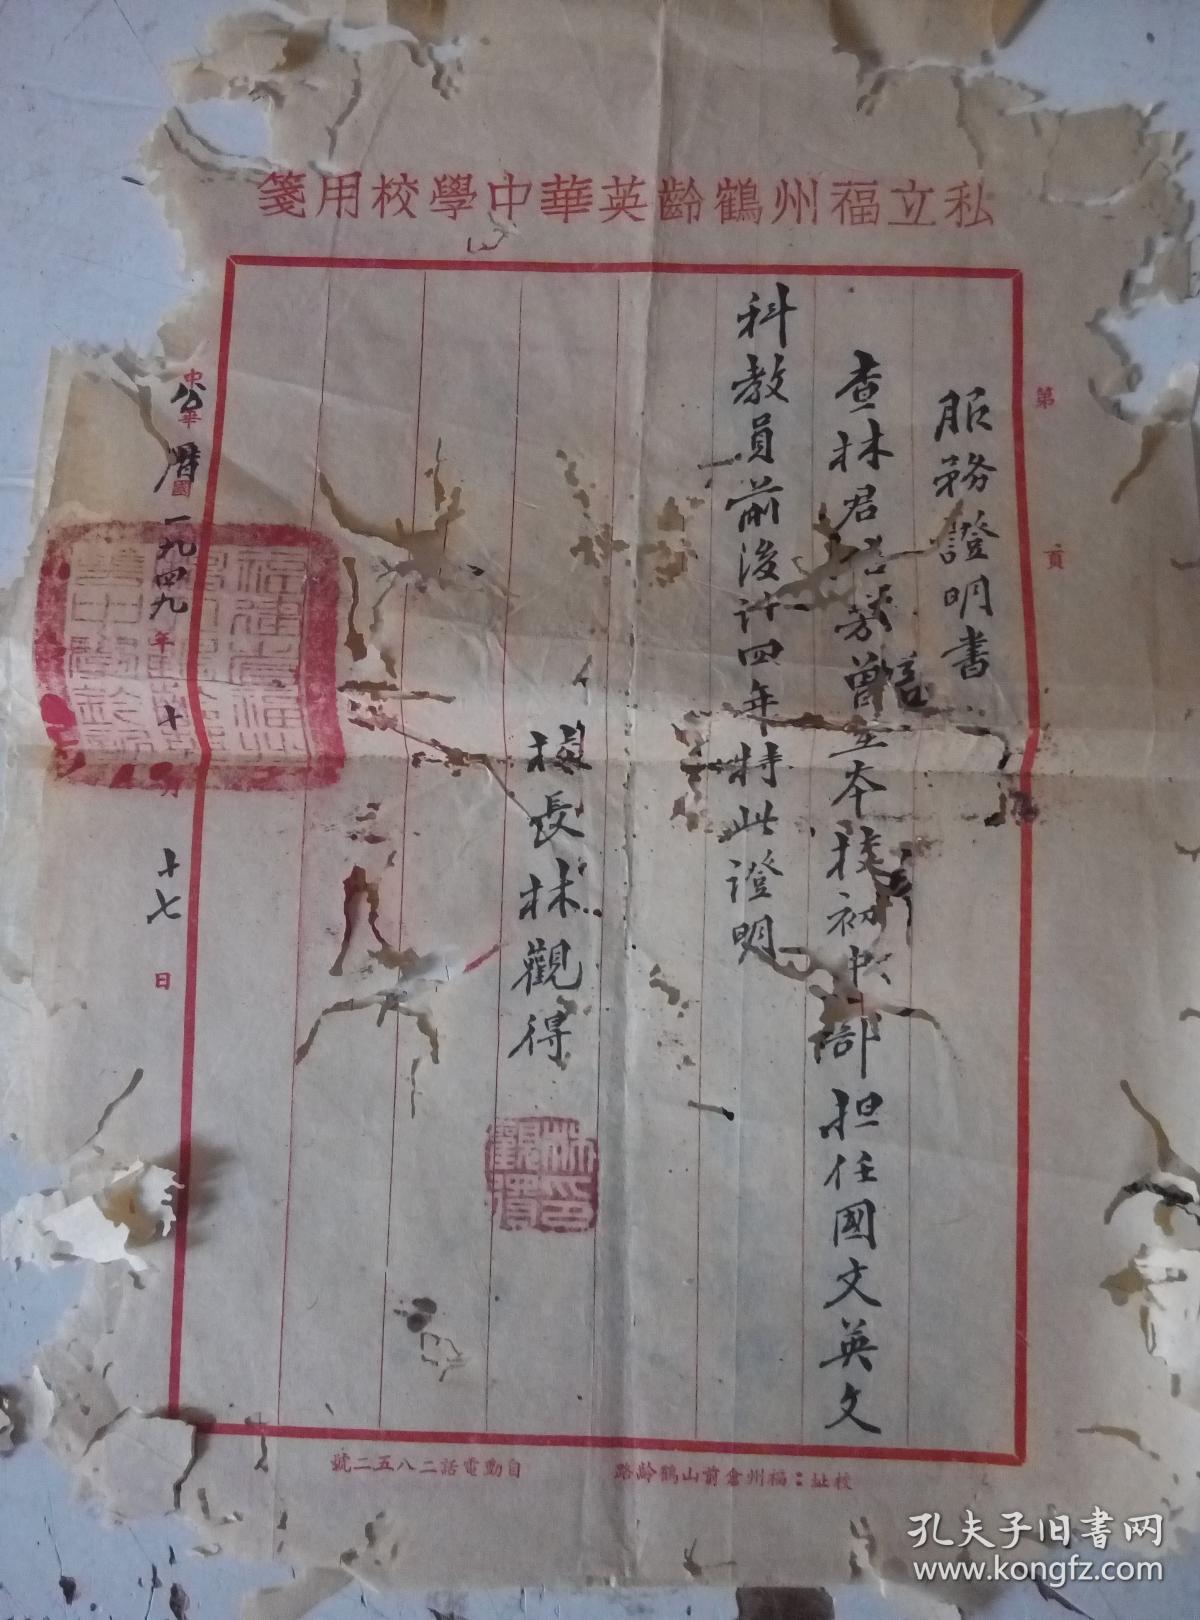 私立福州鶴齡英華中學校用箋
第 頁
服務證明書
查林君 芳曾 本校初中部担任國文英文
科教員前後計四年特此證明
校長林觀得
公曆一九四九年十月十七日
中華 國
校址：福州倉前山鶴齡路
自動電話二八五二號
孔夫子旧書网
www.kongfz.com